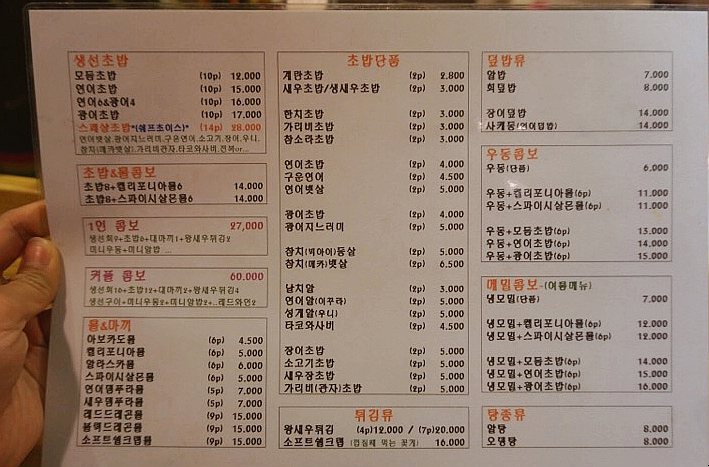 생선초밥
모듬초밥 (10p) 12.000
연어초밥 (10p) 15.000
연어6&광어4 (10p) 16.000
광어초밥 (10p) 17.000
스페샬초밥*(쉐프초이스)* (14p) 28.000
연어뱃살,광어지느러미,구운연어,소고기,장어,우니,
참치(메카뱃살),가리비관자,타코와사비,전복or...
초밥&롤콤보
초밥8+캘리포니아롤6 14.000
초밥8+스파이시살몬롤6 14.000
1인 콤보 27,000
생선회9+초밥8+대마끼1+왕새우튀김2
미니우동+미니알밥 ...
커플 콤보 60.000
생선회16+초밥12+대마끼2+왕새우튀김4
생선구이+미니우동2+미니알밥2+..레드와인2
롤&마끼
아보카도롤 (6p) 4.500
캘리포니아롤 (6p) 5.000
알라스카롤 (6p) 6.000
스파이시살몬롤 (6p) 5.000
연어뎀푸라롤 (5p) 7.000
새우뎀푸라롤 (5p) 7.000
레드드래곤롤 (9p) 15.000
블랙드래곤롤 (9p) 15.000
소프트쉘크랩롤 (9p) 15.000
초밥단품
계란초밥 (2p) 2.800
새우초밥/생새우초밥 (2p) 3.000
한치초밥 (2p) 3.000
가리비초밥 (2p) 3.000
참소라초밥 (2p) 3.000
연어초밥 (2p) 4.000
구운연어 (2p) 4.500
연어뱃살 (2p) 5.000
광어초밥 (2p) 4.000
광어지느러미 (2p) 5.000
참치(빅아이)등살 (2p) 5.000
참치(메카)뱃살 (2p) 6.500
날치알 (2p) 3.000
연어알(이꾸라) (2p) 5.000
성게알(우니) (2p) 5.000
타코와사비 (2p) 4.500
장어초밥 (2p) 5.000
소고기초밥 (2p) 5.000
새우장초밥 (2p) 5.000
가리비(관자)초밥 (2p) 5.000
튀김류
왕새우튀김 (4p)12.000 / (7p)20.000
소프트쉘크랩 (껍질째 먹는 꽃게) 16.000
덮밥류
알밥 7.000
회덮밥 8.000
장어덮밥 14.000
사케동(연어덮밥) 14.000
우동콤보
우동(단품) 6.000
우동+캘리포니아롤(6p) 11.000
우동+스파이시살몬롤(6p) 11.000
우동+모듬초밥(6p) 13.000
우동+연어초밥(6p) 14.000
우동+광어초밥(6p) 15.000
메밀콤보-(여름메뉴)
냉모밀(단품) 7.000
냉모밀+캘리포니아롤(6p) 12.000
냉모밀+스파이시살몬롤(6p) 12.000
냉모밀+모듬초밥(6p) 14.000
냉모밀+연어초밥(6p) 15.000
냉모밀+광어초밥(6p) 16.000
탕종류
알탕 8.000
오뎅탕 8.000